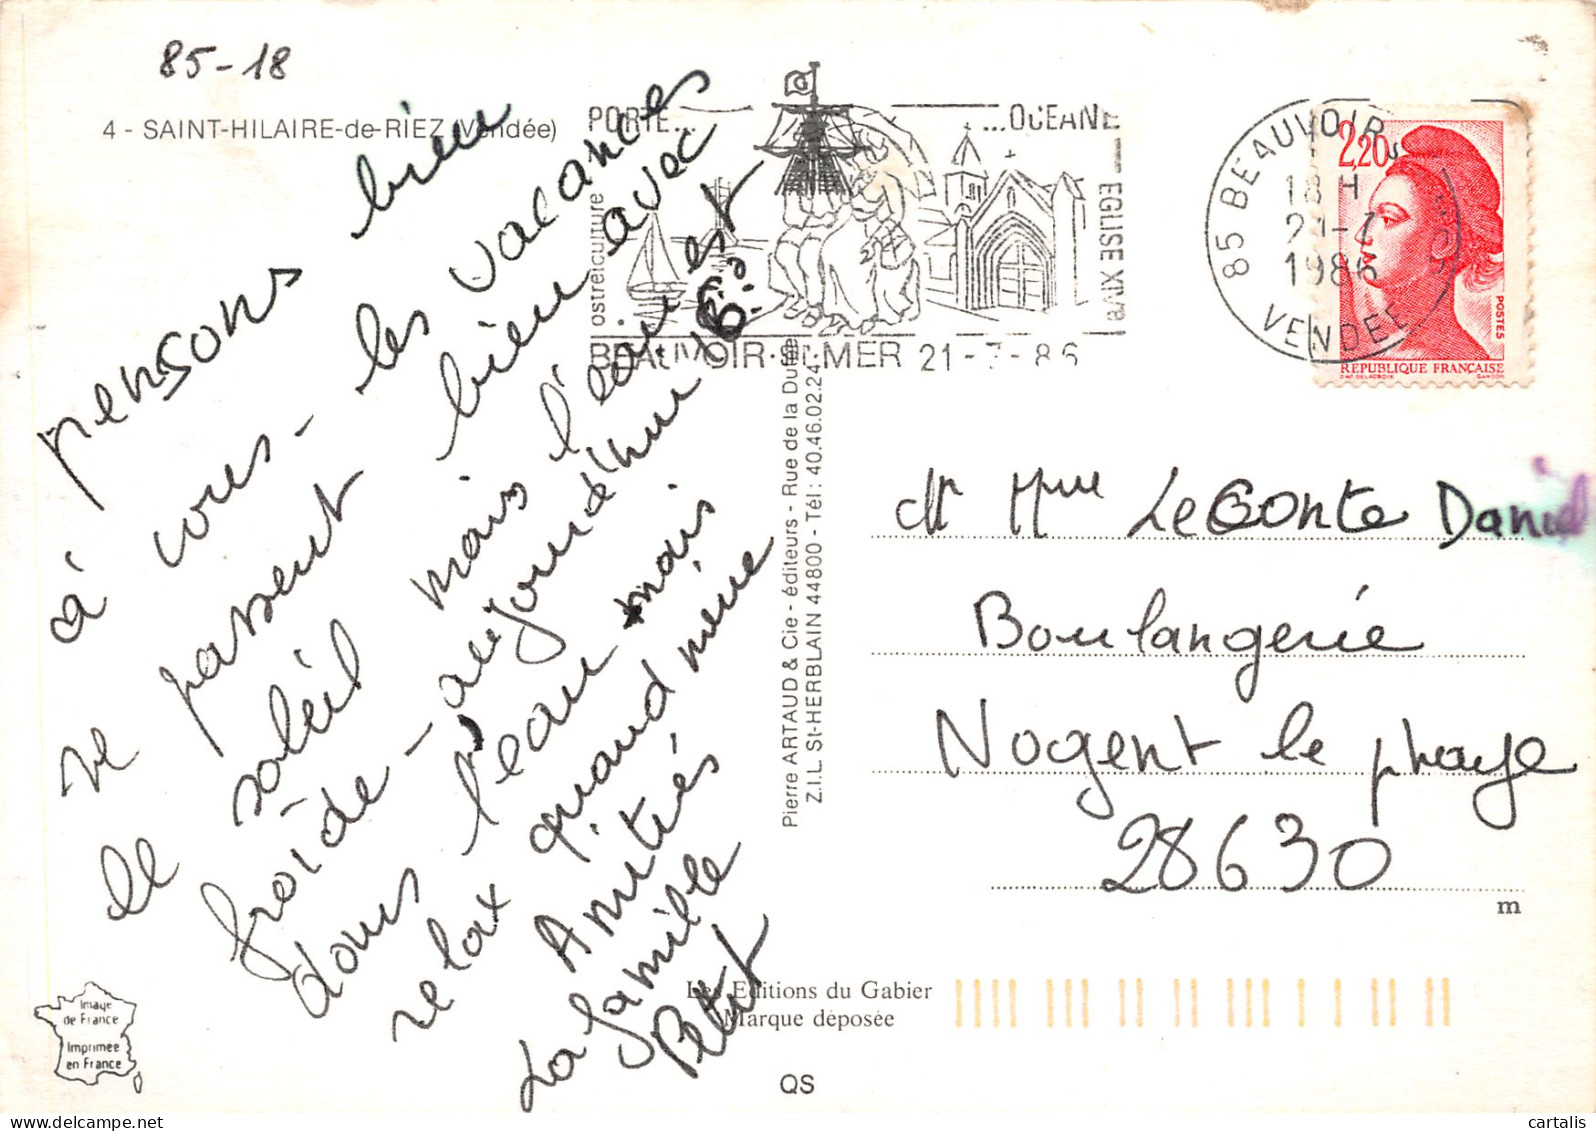 85-18
4 - SAINT-HILAIRE-de-RIEZ (Vendée)
pensons bien
à vous - les vacances
se passent bien avec
le soleil mais l'eau est
froide - aujourd'hui 16°
dans l'eau mais
relax quand même
Amitiés
La famille
Petit
PORTE...
...OCEANE
ostréiculture
EGLISE XIVe
BEAUVOIR-S/-MER 21-7-86
85 BEAUVOIR
18 H
21-7
1986
VENDEE
2,20
POSTES
REPUBLIQUE FRANÇAISE
Pierre ARTAUD & Cie - éditeurs - Rue de la Durée
Z.I.L St-HERBLAIN 44800 - Tél : 40.46.02.24
Mr Mme LeConte Daniel
Boulangerie
Nogent le phaye
28630
m
Les Editions du Gabier
Marque déposée
QS
Image
de France
Imprimée
en France
cartalis